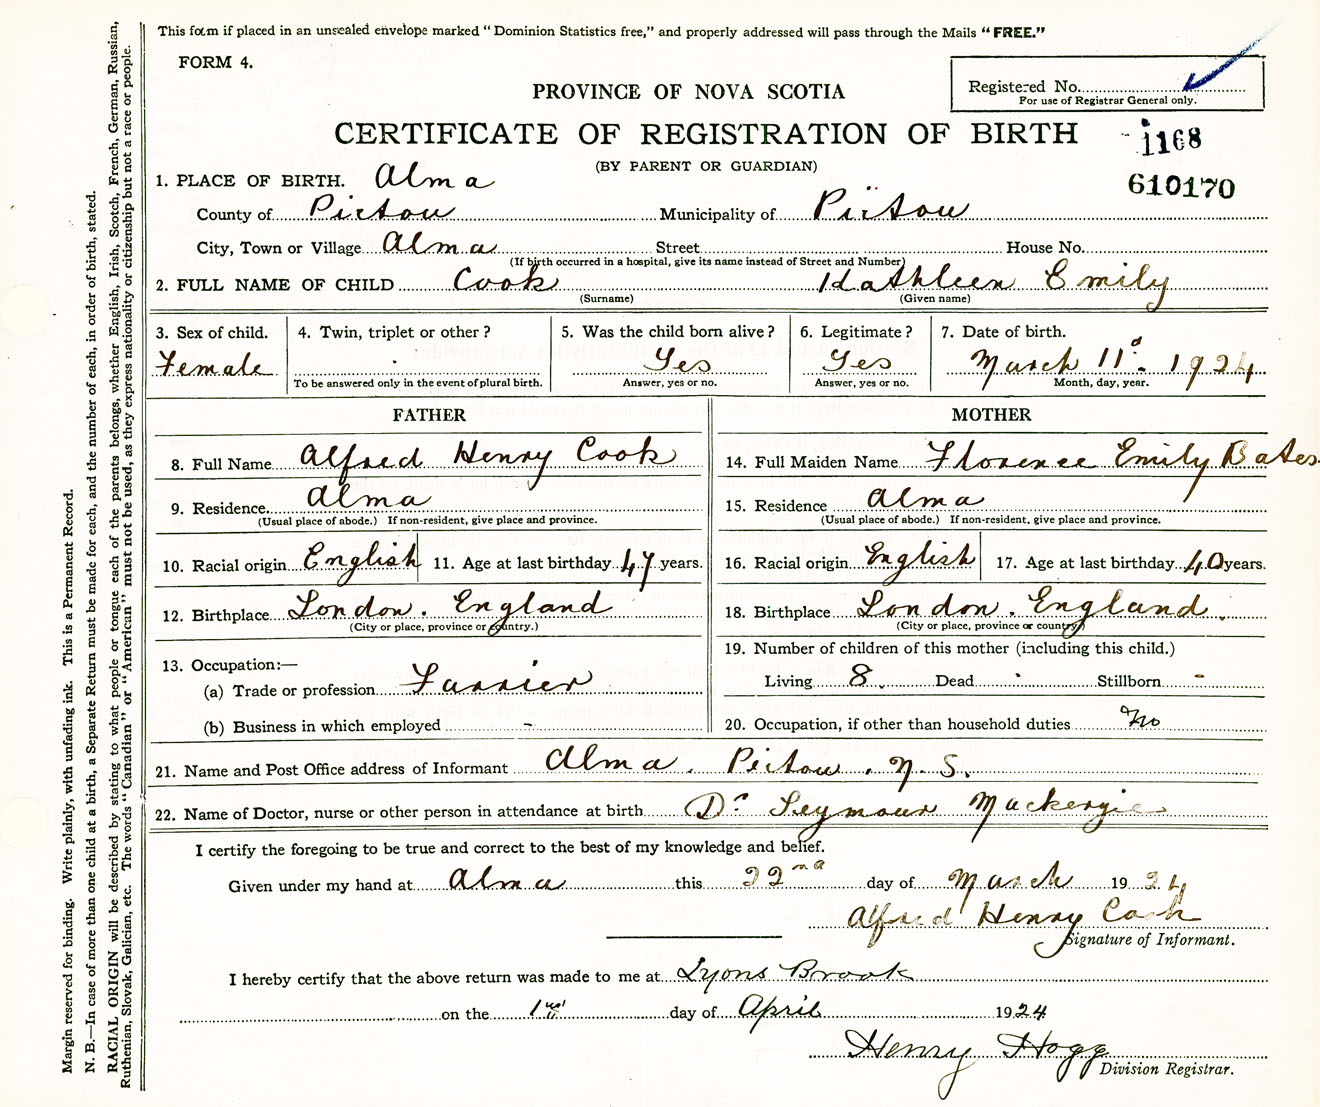 This form if placed in an unsealed envelope marked "Dominion Statistics free," and properly addressed will pass through the Mails "FREE."
FORM 4.
Registered No.
For use of Registrar General only.
PROVINCE OF NOVA SCOTIA
CERTIFICATE OF REGISTRATION OF BIRTH
1168
(BY PARENT OR GUARDIAN)
610170
1. PLACE OF BIRTH. Alma
County of Pictou Municipality of Pictou
City, Town or Village Alma Street House No.
(If birth occurred in a hospital, give its name instead of Street and Number)
2. FULL NAME OF CHILD Cook Kathleen Emily
(Surname) (Given name)
3. Sex of child. 4. Twin, triplet or other? 5. Was the child born alive? 6. Legitimate? 7. Date of birth.
Female Yes Yes March 11d. 1924
To be answered only in the event of plural birth. Answer, yes or no. Answer, yes or no. Month, day, year.
FATHER MOTHER
8. Full Name Alfred Henry Cook 14. Full Maiden Name Florence Emily Bates
9. Residence. Alma 15. Residence Alma
(Usual place of abode.) If non-resident, give place and province. (Usual place of abode.) If non-resident, give place and province.
10. Racial origin English 11. Age at last birthday 47 years. 16. Racial origin English 17. Age at last birthday 40 years.
12. Birthplace London. England 18. Birthplace London. England.
(City or place, province or country.) (City or place, province or country)
19. Number of children of this mother (including this child.)
13. Occupation:—
(a) Trade or profession Farrier Living 8. Dead - Stillborn -
(b) Business in which employed - 20. Occupation, if other than household duties No
21. Name and Post Office address of Informant Alma. Pictou. N. S.
22. Name of Doctor, nurse or other person in attendance at birth Dr. Seymour Mackenzie
I certify the foregoing to be true and correct to the best of my knowledge and belief.
Given under my hand at Alma this 22nd day of March 1924
Alfred Henry Cook
Signature of Informant.
I hereby certify that the above return was made to me at Lyons Brook
on the 1st day of April 1924
Henry Hogg
Division Registrar.
Margin reserved for binding. Write plainly, with unfading ink. This is a Permanent Record.
N. B.—In case of more than one child at a birth, a Separate Return must be made for each, and the number of each, in order of birth, stated.
RACIAL ORIGIN will be described by stating to what people or tongue each of the parents belongs, whether English, Irish, Scotch, French, German, Russian,
Ruthenian, Slovak, Galician, etc. The words "Canadian" or "American" must not be used, as they express nationality or citizenship but not a race or people.